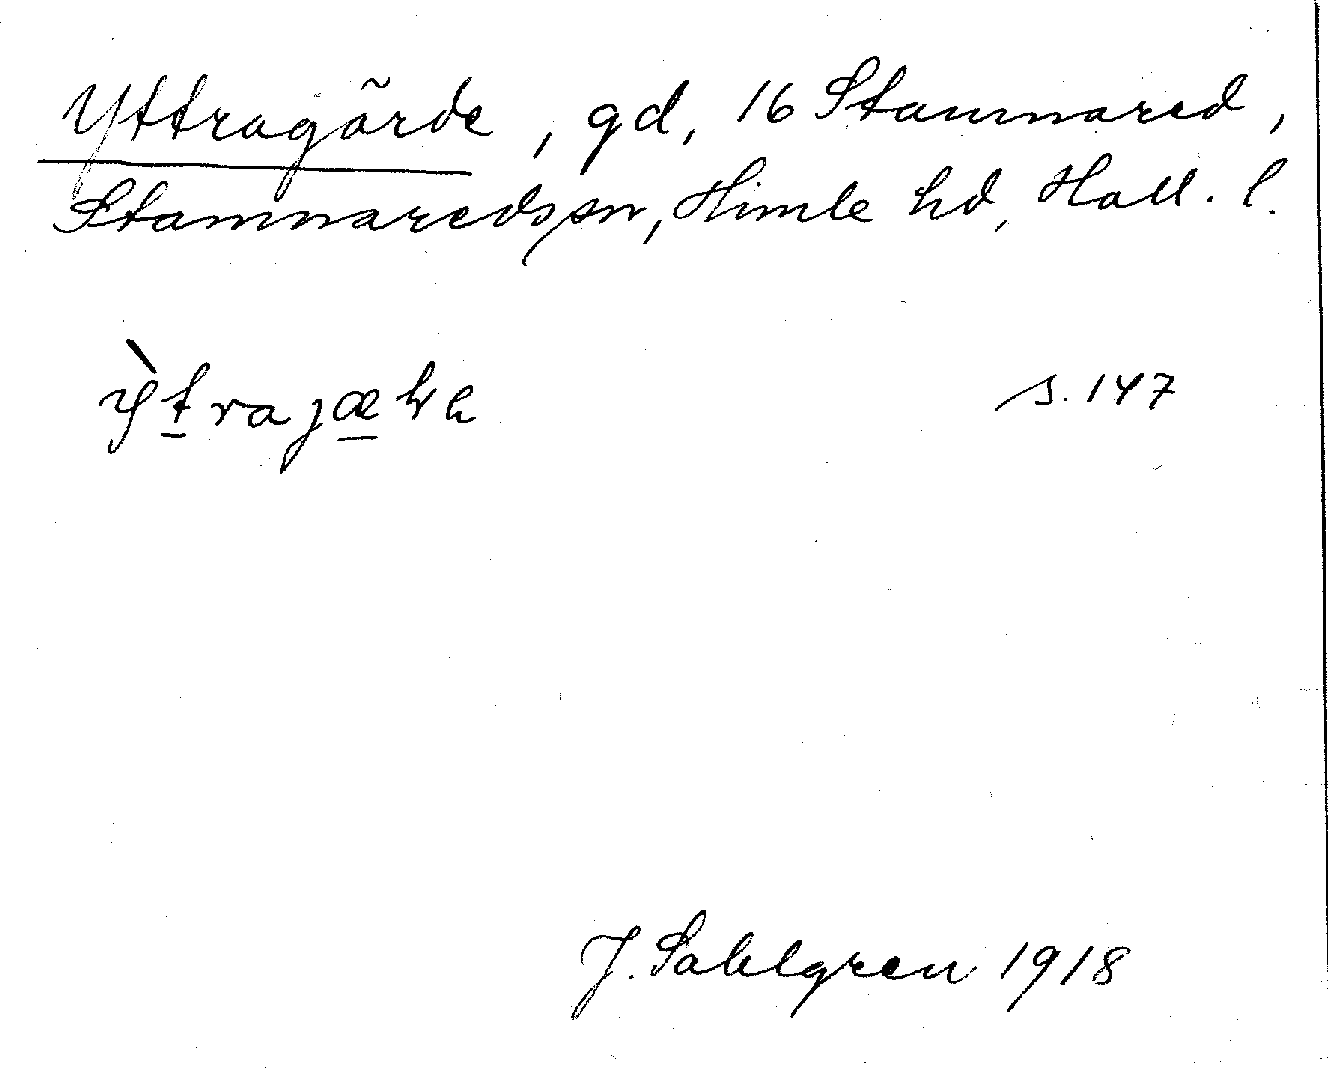 Yttragärde, gd, 16 Stamnared,
Stamnareds sn, Himle hd, Hall. l.
s. 147
J. Sahlgren 1918